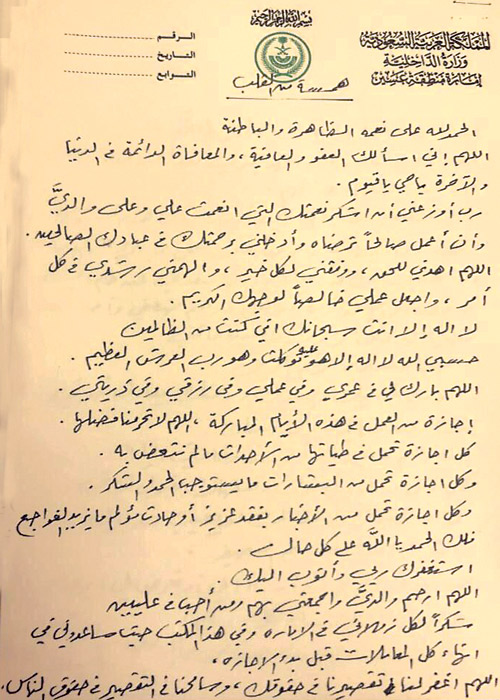 بسم الله الرحمن الرحيم
المملكة العربية السعودية
وزارة الداخلية
إمارة منطقة عسير
الرقم
التاريخ
التوابع
همسة من القلب
الحمد لله على نعمه الظاهرة والباطنة
اللهم إني اسألك العفو والعافية، والمعافاة الدائمة في الدنيا
والآخرة ياحي ياقيوم.
رب أوزعني أن اشكر نعمتك التي انعمت علي وعلى والديَّ
وأن أعمل صالحاً ترضاه وأدخلني برحمتك في عبادك الصالحين.
اللهم اهدني للحق، ووفقني لكل خير، والهمني رشدي في كل
أمر، واجعل عملي خالصاً لوجهك الكريم.
لا اله إلا انت سبحانك اني كنت من الظالمين
حسبي الله لا اله إلا هو عليه توكلت وهو رب العرش العظيم.
اللهم بارك لي في عمري وفي عملي وفي رزقي وفي ذريتي.
إجازة من العمل في هذه الأيام المباركة، اللهم لا تحرمنا فضلها.
كل اجازة تحمل في طياتها من الأحداث مالم نتعض به.
وكل اجازة تحمل من البشارات ما يستوجب الحمد والشكر.
وكل اجازة تحمل من الأخبار بفقد عزيز أو حادث مؤلم ما يزيد الفواجع
فلك الحمد يا الله على كل حال.
استغفرك ربي وأتوب اليك.
اللهم ارحم والديَّ واجمعني بهم ومن أحب في عليين
شكراً لكل زملائي في الاماره وفي هذا المكتب حيث ساعدوني في
انهاء كل المعاملات قبل بدء الاجازه،
اللهم اغفر لنا في تقصيرنا في حقوقك، وسامحنا في التقصير في حقوق الناس.